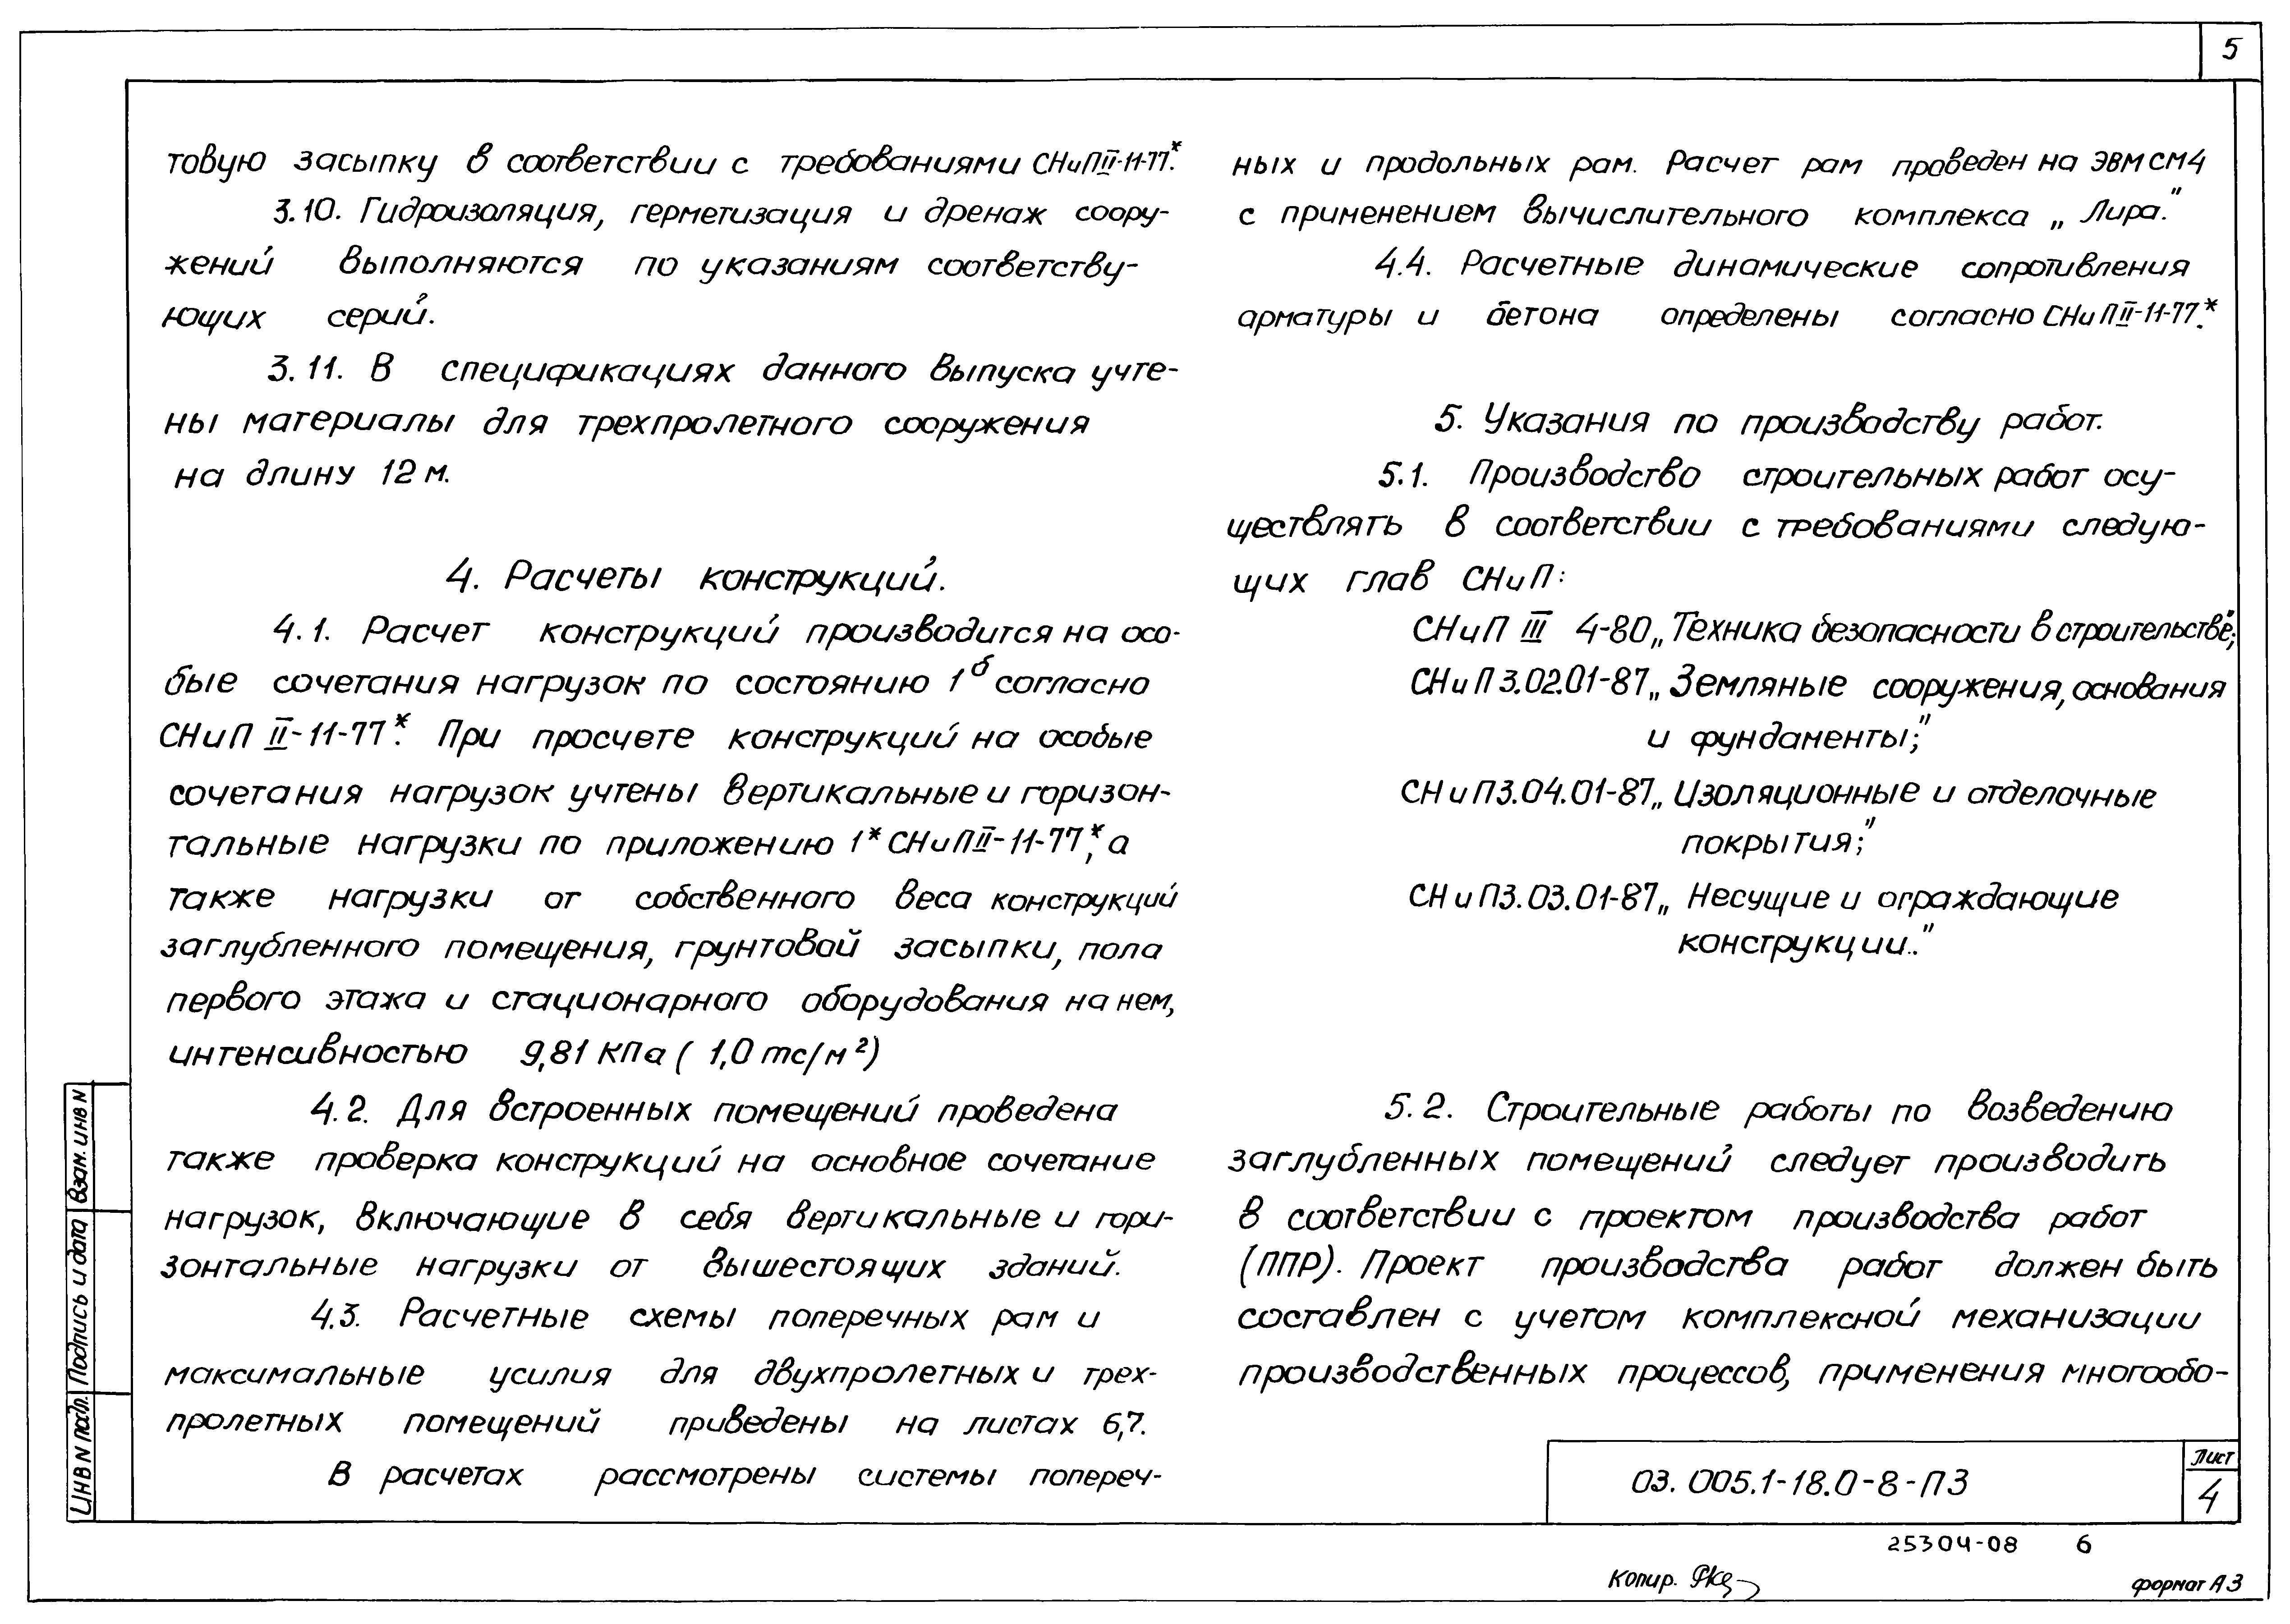 5
товую засыпку в соответствии с требованиями СНиП II-11-77*.
3.10. Гидроизоляция, герметизация и дренаж соору-
жений выполняются по указаниям соответству-
ющих серий.
3.11. В спецификациях данного выпуска учте-
ны материалы для трехпролетного сооружения
на длину 12 м.
4. Расчеты конструкций.
4.1. Расчет конструкций производится на осо-
бые сочетания нагрузок по состоянию 1б согласно
СНиП II-11-77*. При просчете конструкций на особые
сочетания нагрузок учтены вертикальные и горизон-
тальные нагрузки по приложению 1* СНиП II-11-77*, а
также нагрузки от собственного веса конструкций
заглубленного помещения, грунтовой засыпки, пола
первого этажа и стационарного оборудования на нем,
интенсивностью 9,81 КПа ( 1,0 тс/м²)
4.2. Для встроенных помещений проведена
также проверка конструкций на основное сочетание
нагрузок, включающие в себя вертикальные и гори-
зонтальные нагрузки от вышестоящих зданий.
4.3. Расчетные схемы поперечных рам и
максимальные усилия для двухпролетных и трех-
пролетных помещений приведены на листах 6,7.
В расчетах рассмотрены системы попереч-
ных и продольных рам. Расчет рам проведен на ЭВМ СМ4
с применением вычислительного комплекса „Лира."
4.4. Расчетные динамические сопротивления
арматуры и бетона определены согласно СНиП II-11-77*.
5. Указания по производству работ.
5.1. Производство строительных работ осу-
ществлять в соответствии с требованиями следую-
щих глав СНиП:
СНиП III 4-80 „Техника безопасности в строительстве";
СНиП 3.02.01-87 „Земляные сооружения, основания
и фундаменты;"
СНиП 3.04.01-87 „Изоляционные и отделочные
покрытия;"
СНиП 3.03.01-87 „Несущие и ограждающие
конструкции.."
5.2. Строительные работы по возведению
заглубленных помещений следует производить
в соответствии с проектом производства работ
(ППР). Проект производства работ должен быть
составлен с учетом комплексной механизации
производственных процессов, применения многообо-
Взам. инв N
Подпись и дата
Инв N подл.
03.005.1-18.0-8-ПЗ
Лист
4
25304-08 6
Копир.
формат А3